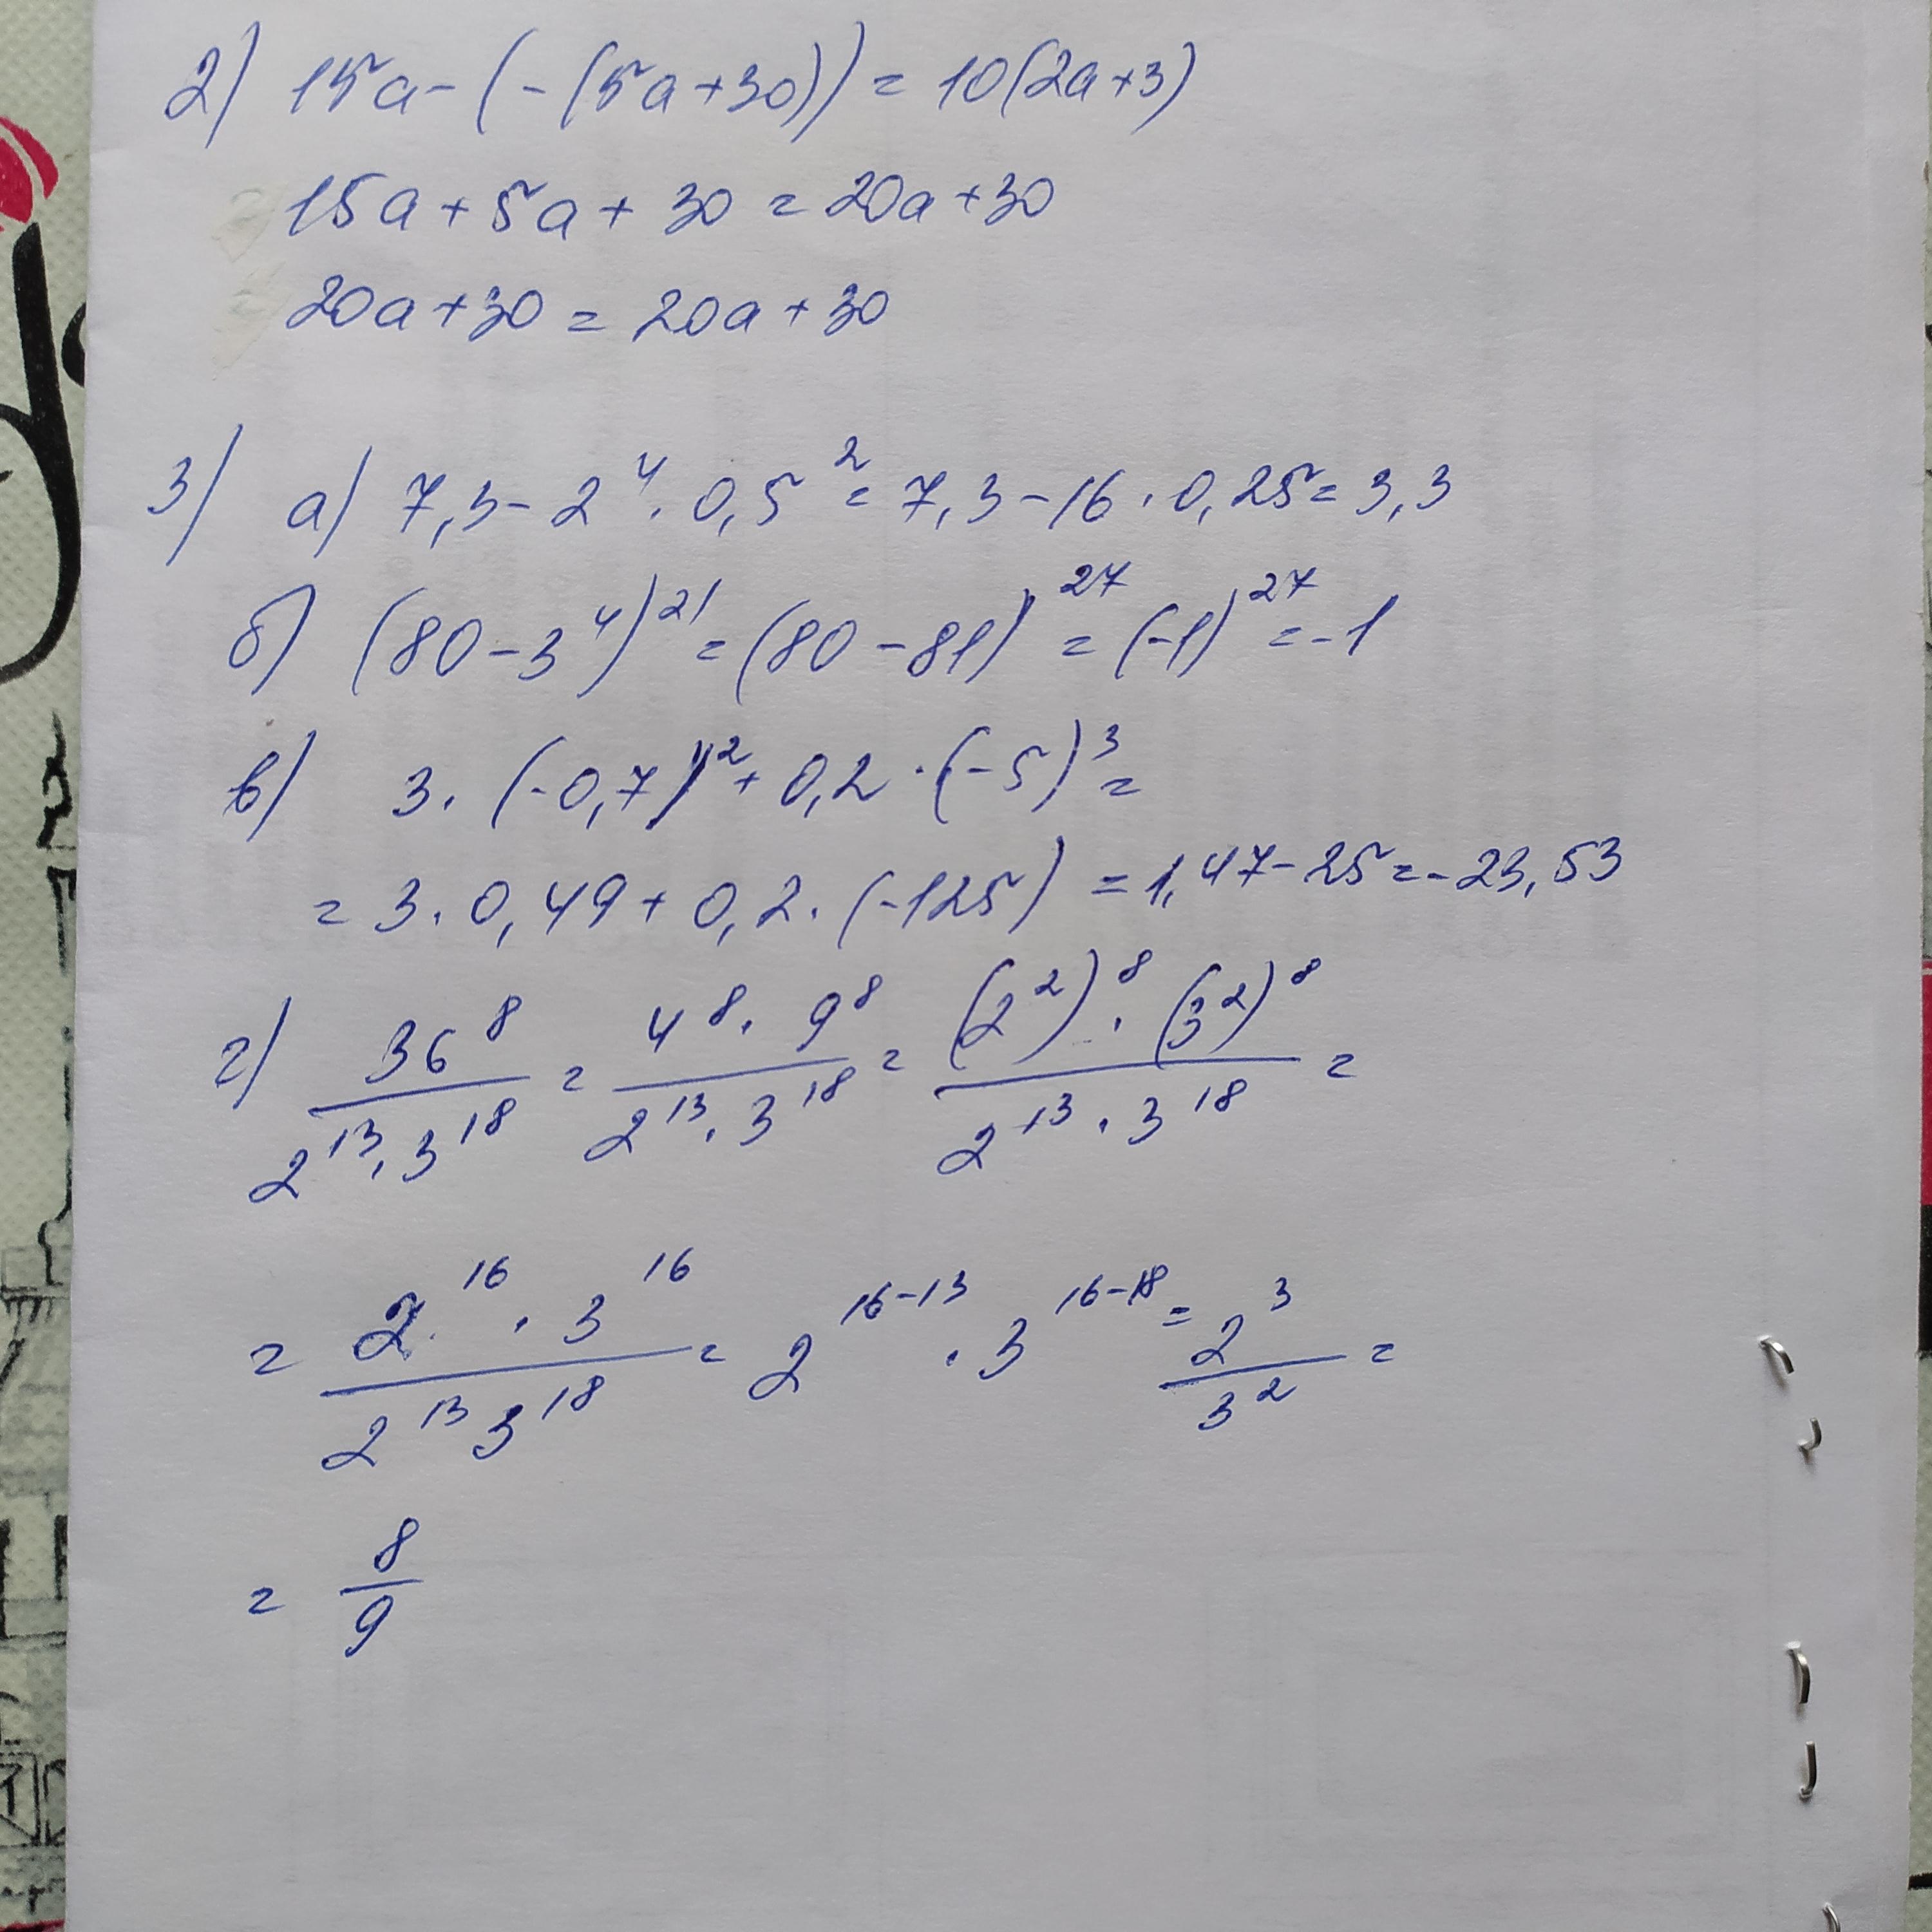 2) 15a-(-(5a+30))=10(2a+3)
15a+5a+30=20a+30
20a+30=20a+30
3) а) 7,3-2⁴·0,5²=7,3-16·0,25=3,3
б) (80-3⁴)²¹=(80-81)²⁷=(-1)²⁷=-1
в) 3·(-0,7)²+0,2·(-5)³=
=3·0,49+0,2·(-125)=1,47-25=-23,53
г) 36⁸/(2¹³·3¹⁸)=(4⁸·9⁸)/(2¹³·3¹⁸)=((2²)⁸·(3²)⁸)/(2¹³·3¹⁸)=
=(2¹⁶·3¹⁶)/(2¹³3¹⁸)=2¹⁶⁻¹³·3¹⁶⁻¹⁸=2³/3²=
=8/9